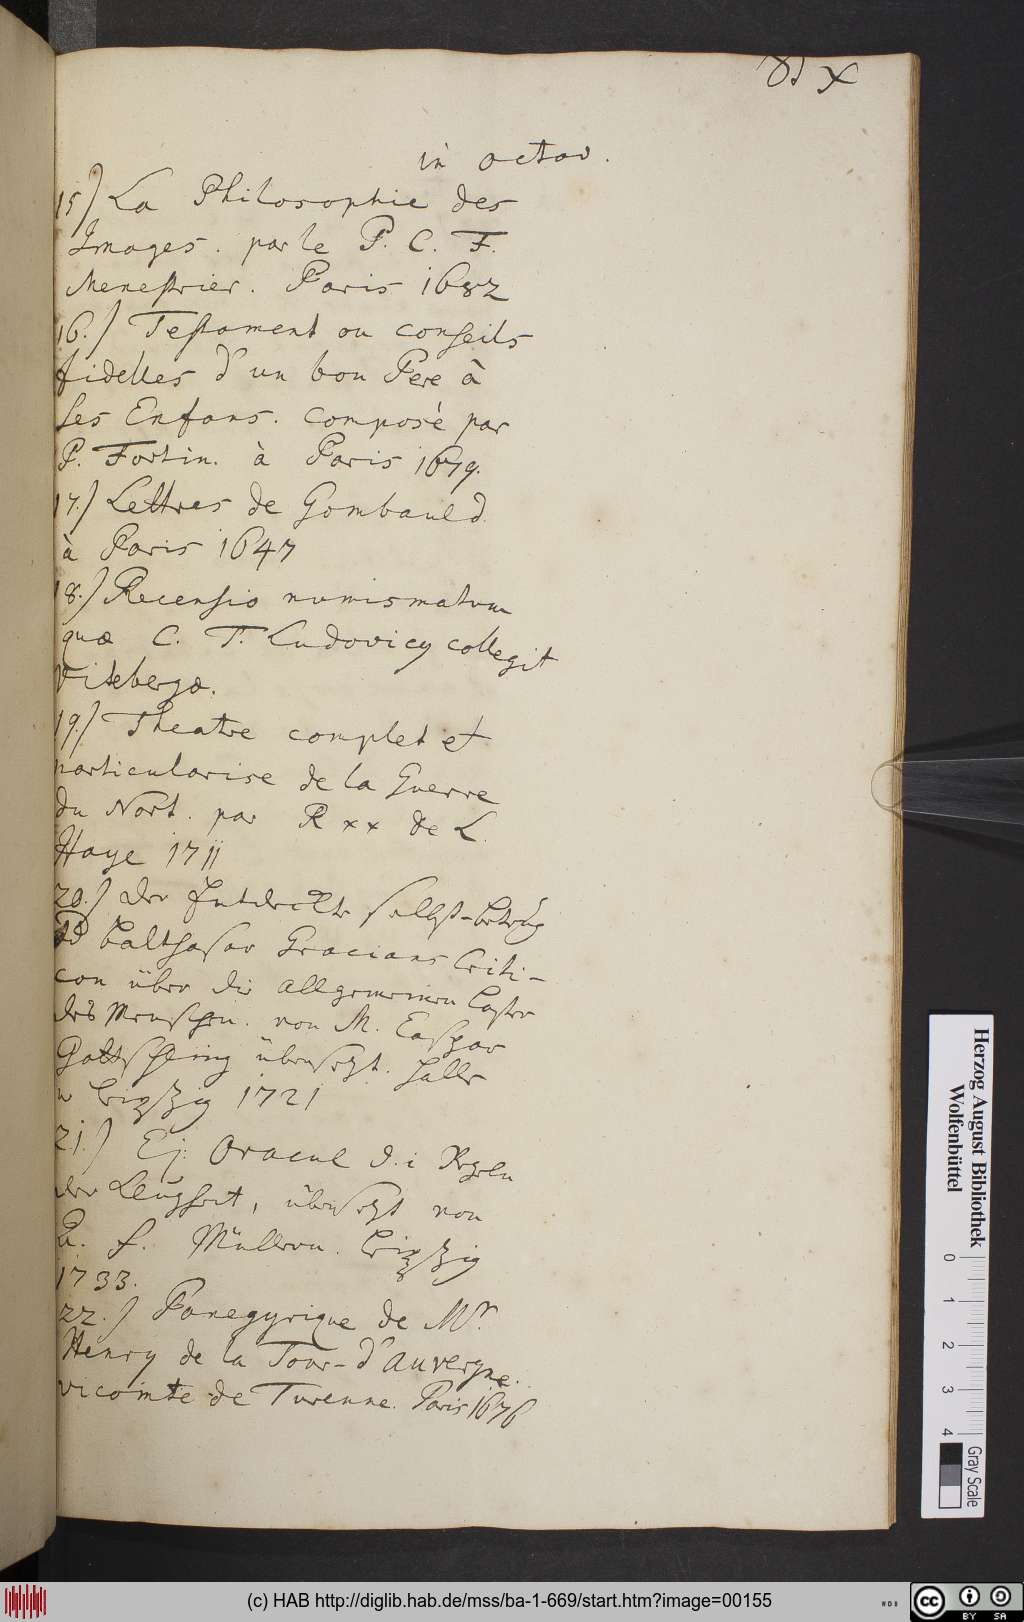 in octav.
15) La Philosophie des
Images. par le P. C. F.
Menestrier. Paris 1682
16.) Testament ou conseils
fidelles d'un bon Pere à
ses Enfans. composè par
P. Fortin. à Paris 1679.
17.) Lettres de Gombauld
à Paris 1647
18.) Recensio numismatum
quæ C. T. Ludovicy collegit
Vitebergæ.
19.) Theatre complet et
particularise de la Guerre
du Nort. par R xx de L.
Haye 1711
20.) Der Entdeckte selbst-betrug
Balthasar Gracians Criti-
con über die allgemeinen Laster
des Menschen. von M. Caspar
Gottschling übersezt. Halle
u Leipzig 1721
21.) Ej: Oracul d. i Regeln
der Klugheit, übersezt von
A. F. Müllern. Leipzig
1733.
22.) Panegyrique de Mr.
Henry de la Tour-d'Auvergne.
vicomte de Turenne. Paris 1676
Herzog August Bibliothek
Wolfenbüttel
0 1 2 3 4
Gray Scale
(c) HAB http://diglib.hab.de/mss/ba-1-669/start.htm?image=00155
WDB
cc BY SA